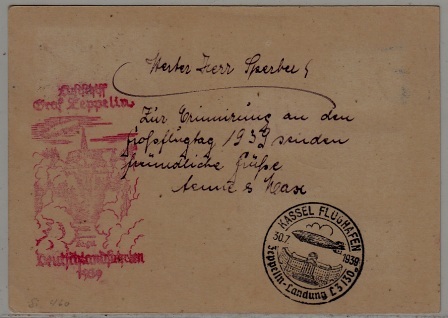 Luftschiff
Graf Zeppelin
Deutschlandfahrten
1939
Werter Herr Sperber!
Zur Erinnerung an den
Großflugtag 1939 senden
freundliche Grüße
Aenne & Max
KASSEL FLUGHAFEN
30.7. 1939
Zeppelin-Landung LZ 130